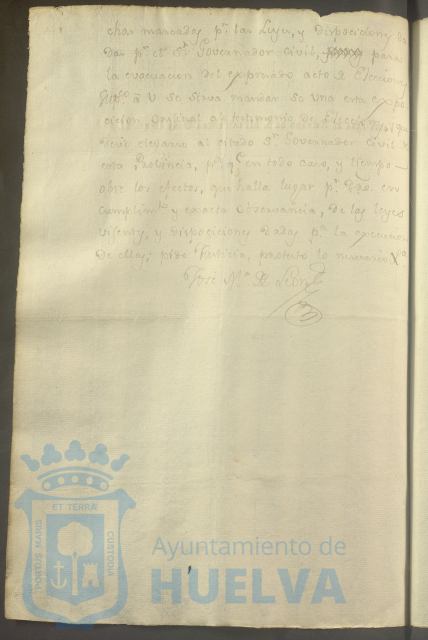 chas marcadas pr. las Leyes, y Disposiciones da
das pr. el Sr. Governador Civil, para
la evacuacion del expresado acto de Elecciones
Supco. á V. se sirva mandar se una esta expo
sicion, original al testimonio de Elecciones, que
deve elevarse al citado Sr. Governador Civil de
esta Provincia, pa. qe. en todo caso, y tiempo
obre los efectos, que halla lugar pr. Dro. en
cumplimto. y exacta observancia, de las leyes
vigentes, y Disposiciones dadas pa. la execucion
de ellas; pido Justicia, protesto lo necesario Xa.
José Ma. de Leon
PORTUS MARIS
ET TERRA
CUSTODIA
Ayuntamiento de
HUELVA